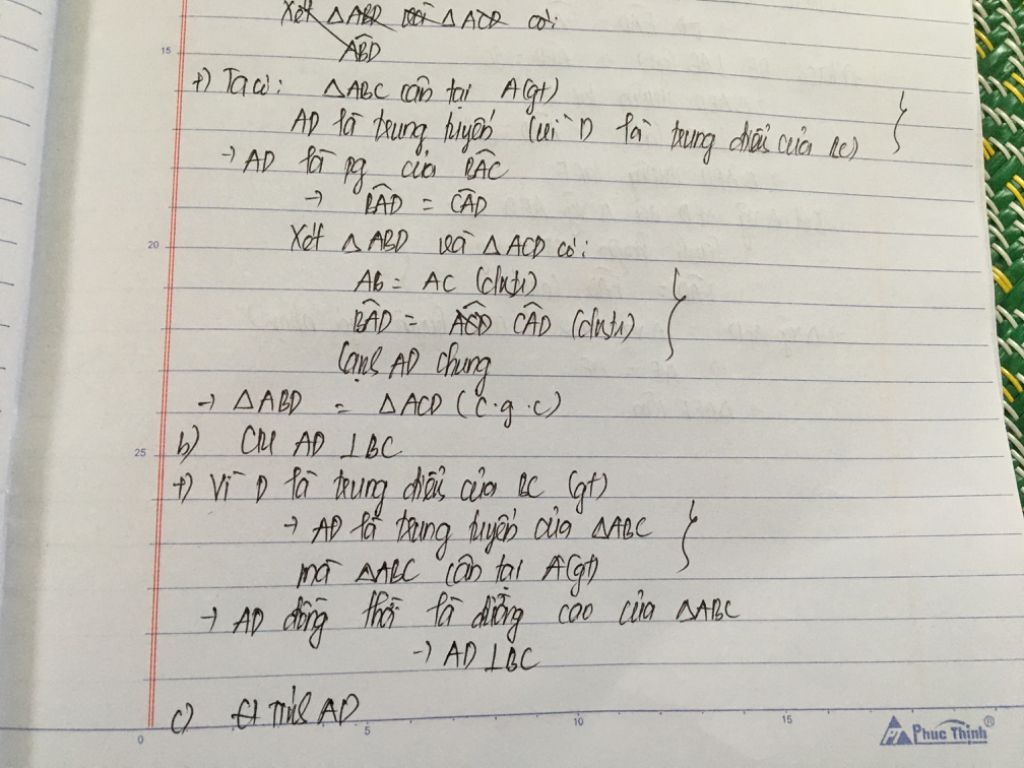 Xét △ABD với △ACD có:
15
ABD
+) Ta có: △ABC cân tại A(gt)
AD là trung tuyến (vì D là trung điểm của BC)
→ AD là pg của BAC
→ BAD = CAD
20
Xét △ABD và △ACD có:
AB = AC (cmt)
BAD = ACD CAD (cmt)
Cạnh AD chung
→ △ABD = △ACD (c.g.c)
25
b) CM AD ⊥ BC
+) Vì D là trung điểm của BC (gt)
→ AD là trung tuyến của △ABC
mà △ABC cân tại A(gt)
→ AD đồng thời là đường cao của △ABC
→ AD ⊥ BC
c) Tính AD
0 5 10 15
Phuc Thinh®